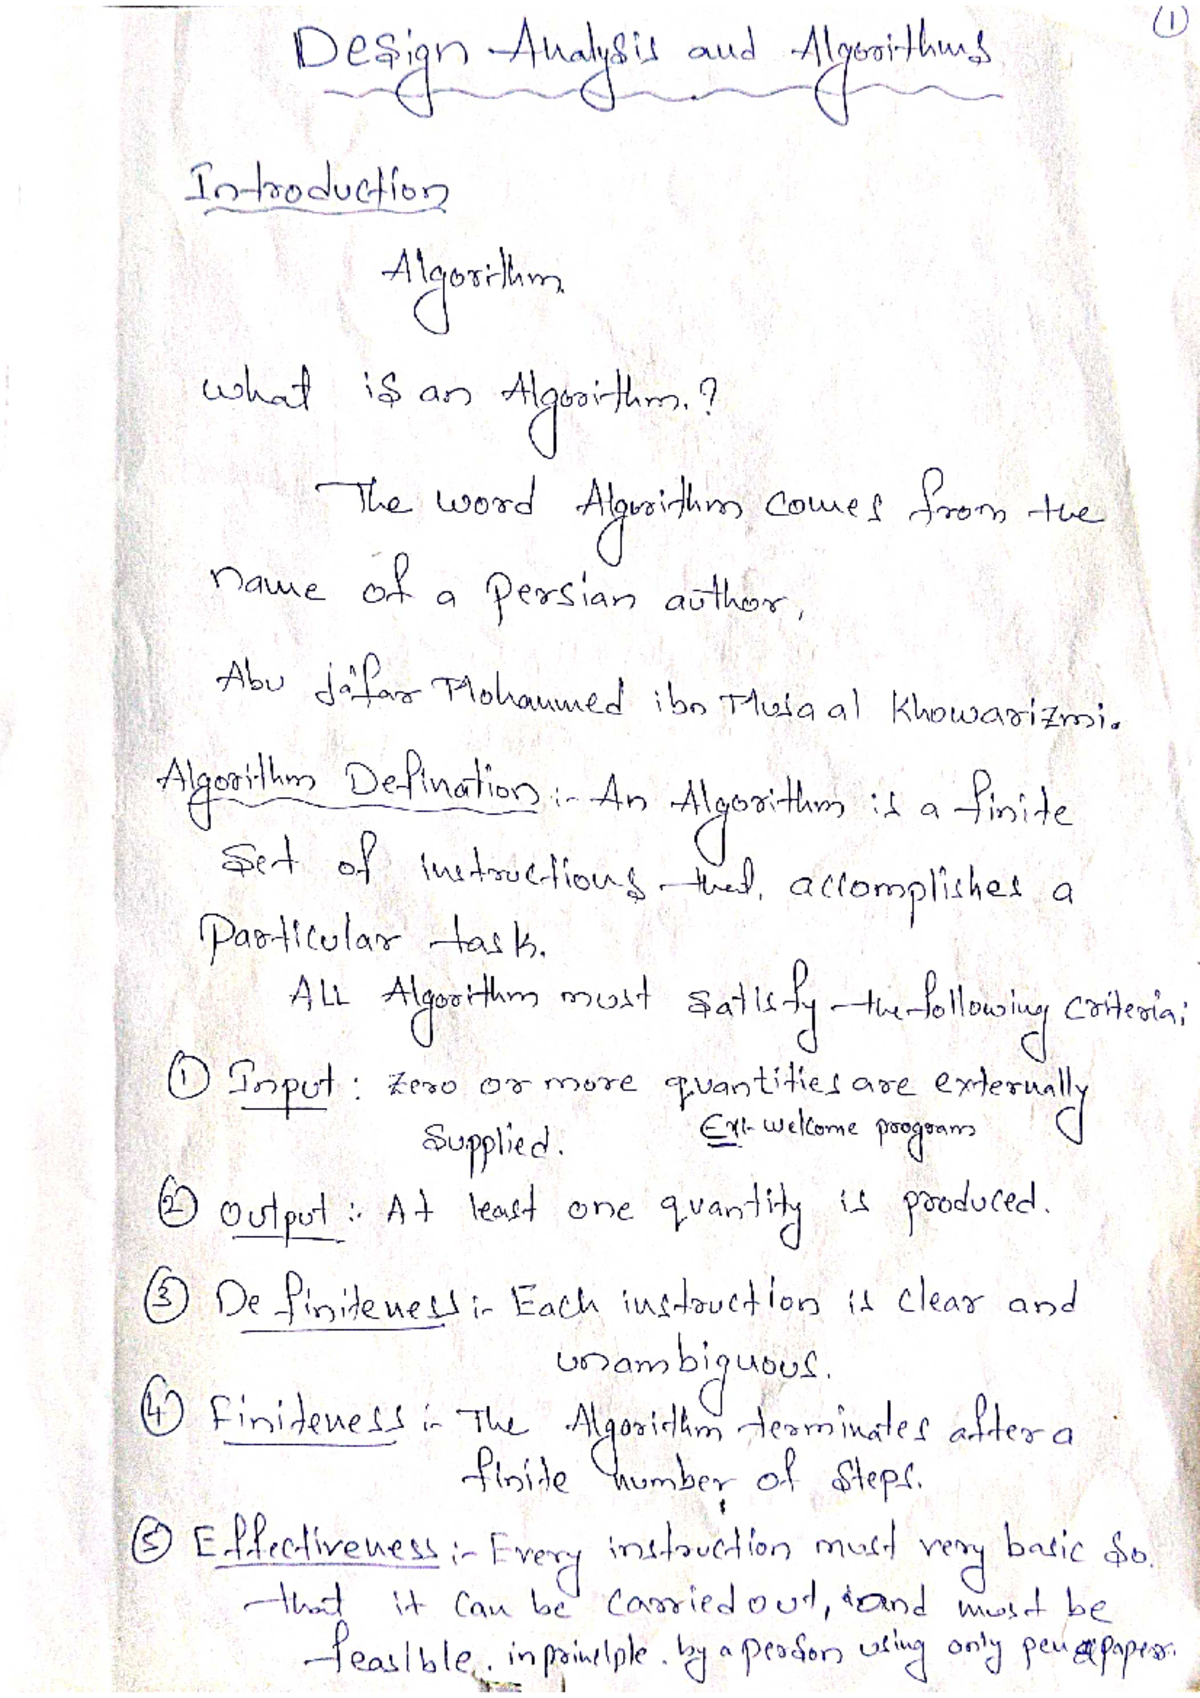 1
Design Analysis and Algorithms
Introduction
Algorithm
what is an Algorithm.?
The word Algorithm comes from the
name of a Persian author,
Abu ja'far Mohammed ibn Musa al Khowarizmi.
Algorithm Defination :- An Algorithm is a finite
Set of instructions that accomplishes a
Particular task.
ALL Algorithm must satisfy the following criteria;
1 Input : zero or more quantities are externally
Supplied. Ex:- welcome program
2 Output :- At least one quantity is produced.
3 Definiteness :- Each instruction is clear and
unambiguous.
4 Finiteness :- The Algorithm terminates after a
finite number of steps.
5 Effectiveness :- Every instruction must very basic so
that it can be carried out, and must be
feasible. in principle. by a person using only pen & paper.